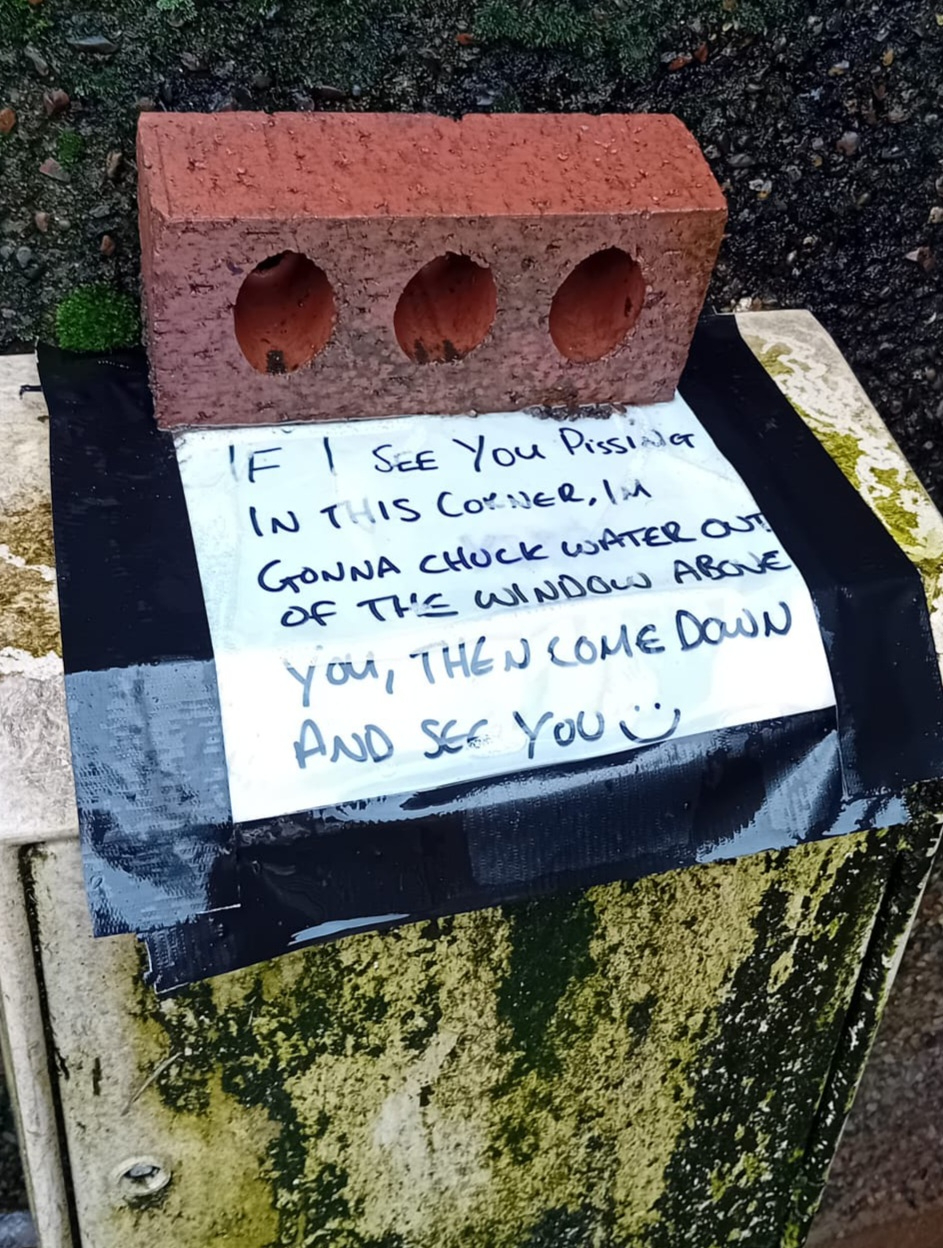 IF I SEE YOU PISSING
IN THIS CORNER, IM
GONNA CHUCK WATER OUT
OF THE WINDOW ABOVE
YOU, THEN COME DOWN
AND SEE YOU :)